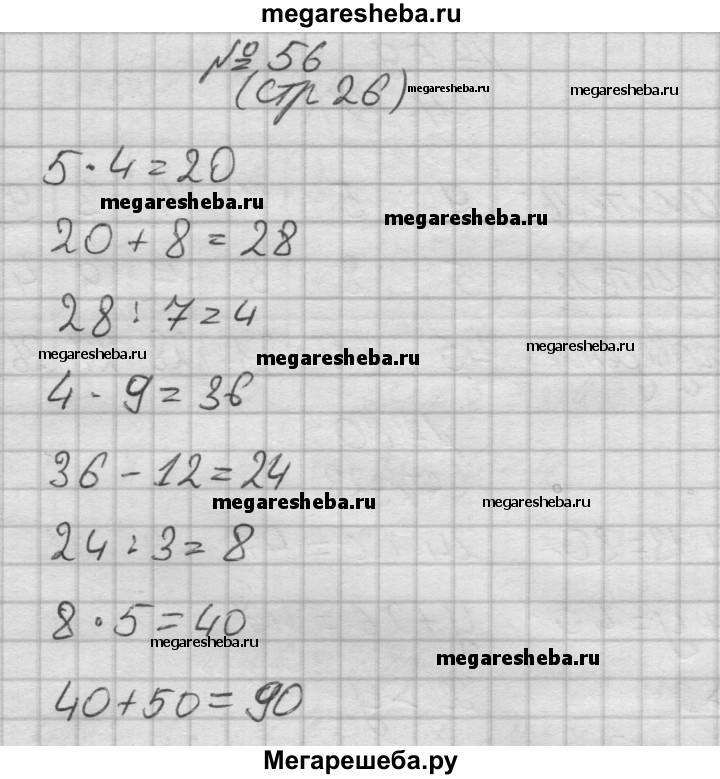 megaresheba.ru
№ 56
(стр 26) megaresheba.ru megaresheba.ru
5 · 4 = 20
megaresheba.ru megaresheba.ru
20 + 8 = 28
28 : 7 = 4
megaresheba.ru megaresheba.ru megaresheba.ru
4 · 9 = 36
36 - 12 = 24
megaresheba.ru megaresheba.ru
24 : 3 = 8
8 · 5 = 40
megaresheba.ru megaresheba.ru
40 + 50 = 90
Мегарешеба.ру